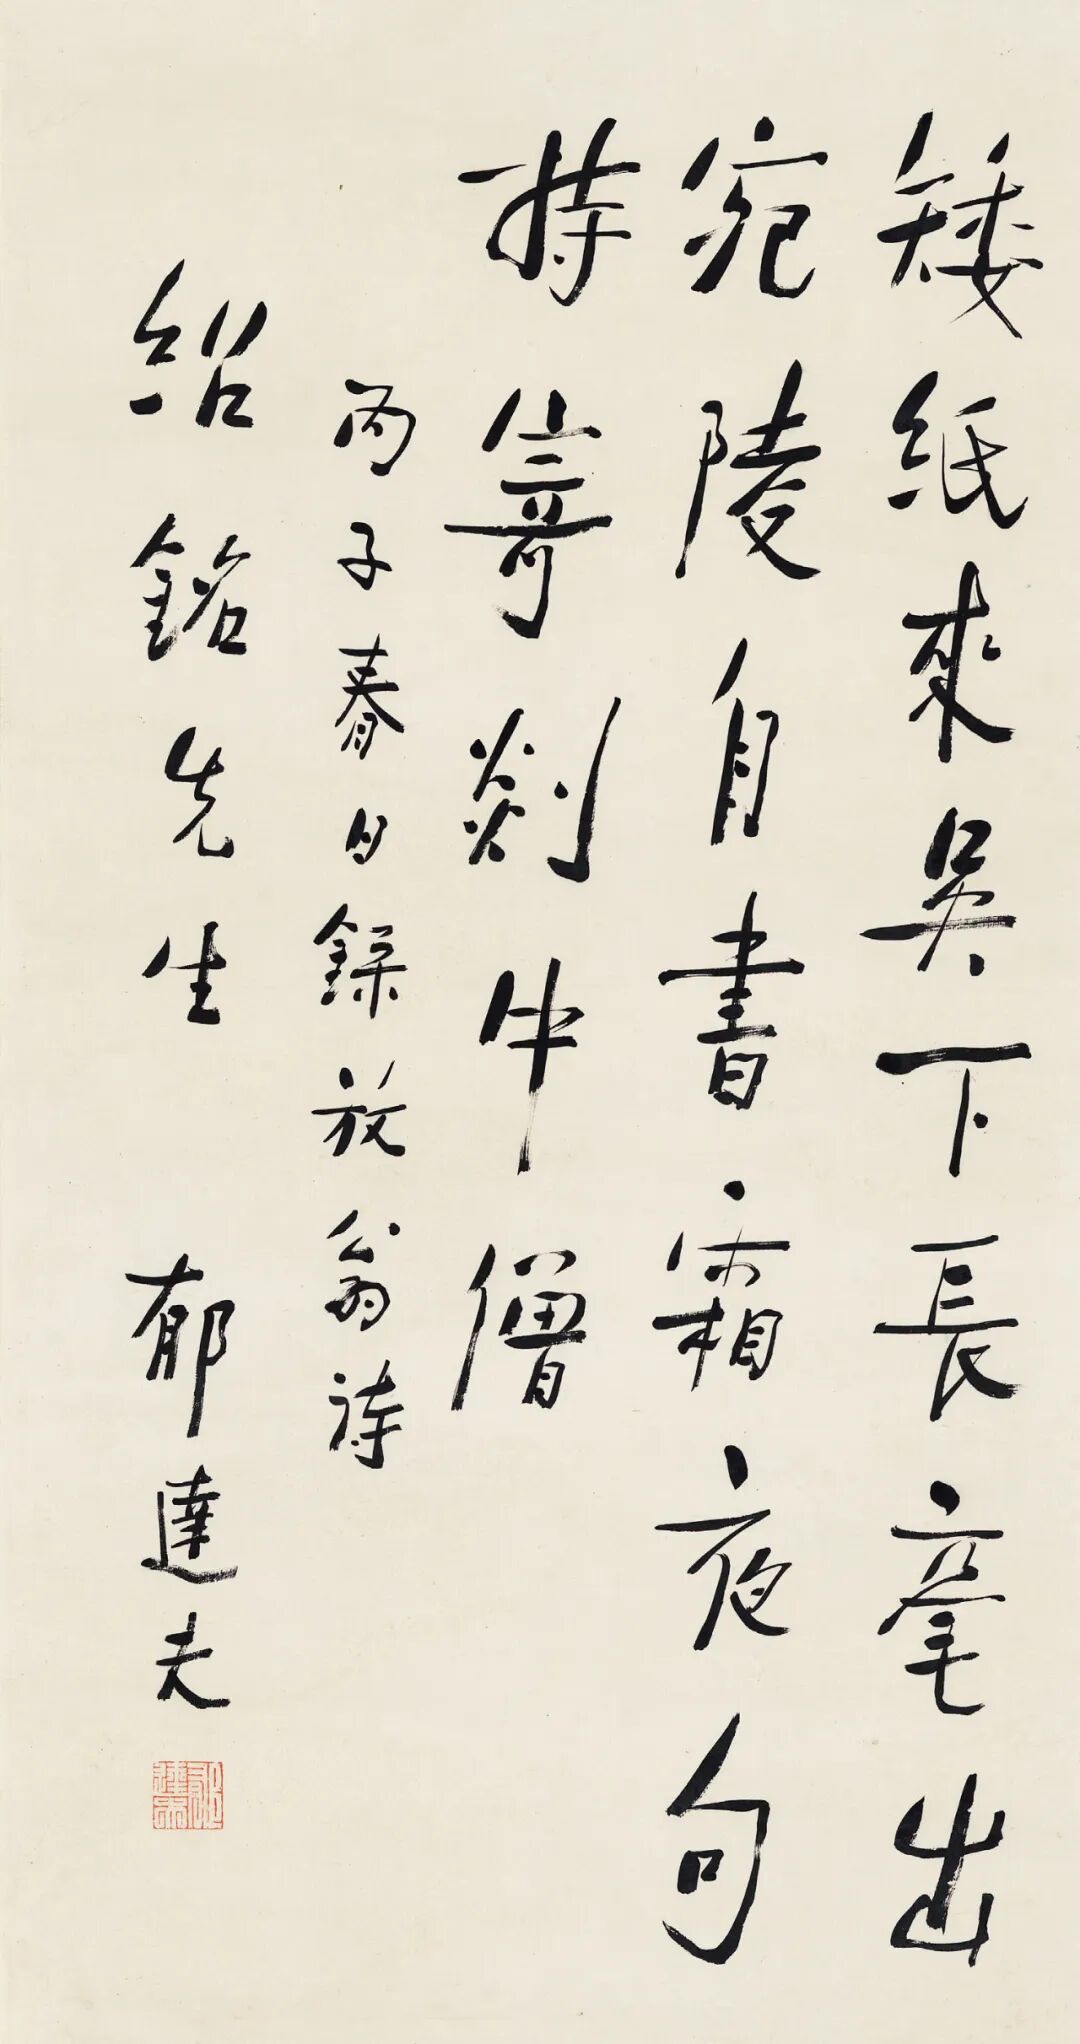 矮紙來吳下長毫出
宛陵自書霜夜句
持寄剡中僧
丙子春日錄放翁詩
紹銘先生 郁達夫
郁達夫